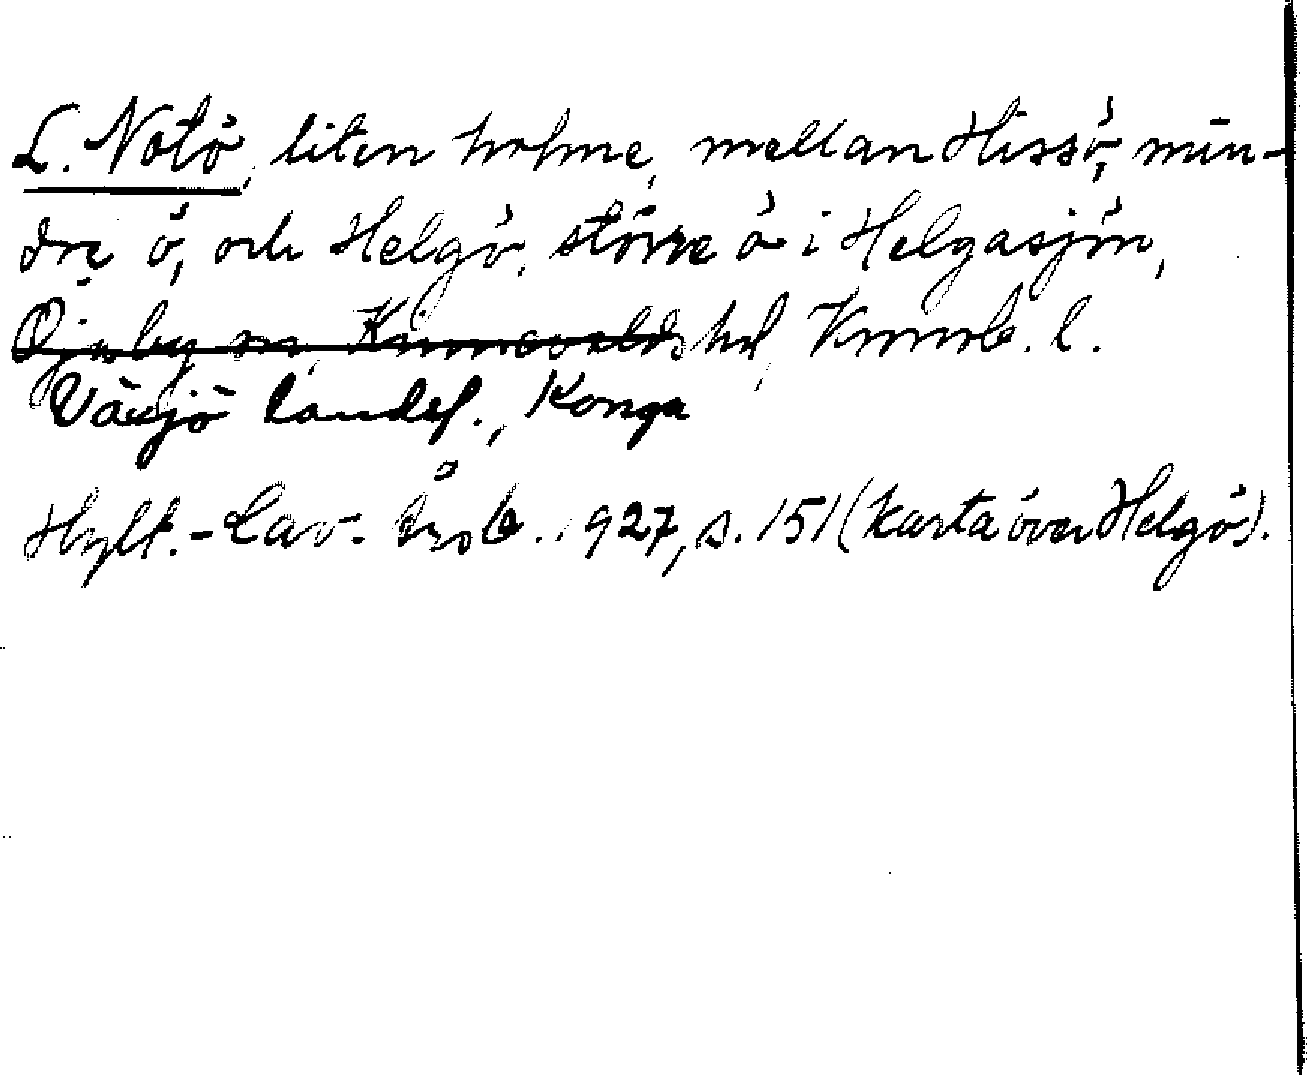 L. Notö, liten holme, mellan Hissö, min-
dre ö, och Helgö, större ö i Helgasjön,
Öjaby sn, Kinnevalds hd, Kronob. l.
Växjö landsf., Konga
Hylt.-Cav. årsb. 1927, s. 151 (karta över Helgö).